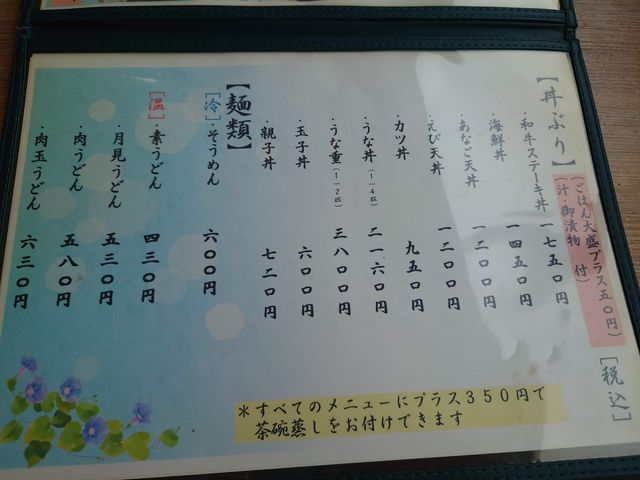 【丼ぶり】
(ごはん大盛プラス五〇円)
(汁・御漬物 付)
[税込]
・和牛ステーキ丼 一七五〇円
・海鮮丼 一四五〇円
・あなご天丼 一二〇〇円
・えび天丼 一二〇〇円
・カツ丼 九五〇円
・うな丼(1-4匹) 二一六〇円
・うな重(1-2匹) 三八〇〇円
・玉子丼 六〇〇円
・親子丼 七二〇円
【麺類】
[冷]・そうめん 六〇〇円
[温]・素うどん 四三〇円
・月見うどん 五三〇円
・肉うどん 五八〇円
・肉玉うどん 六三〇円
*すべてのメニューにプラス350円で
茶碗蒸しをお付けできます